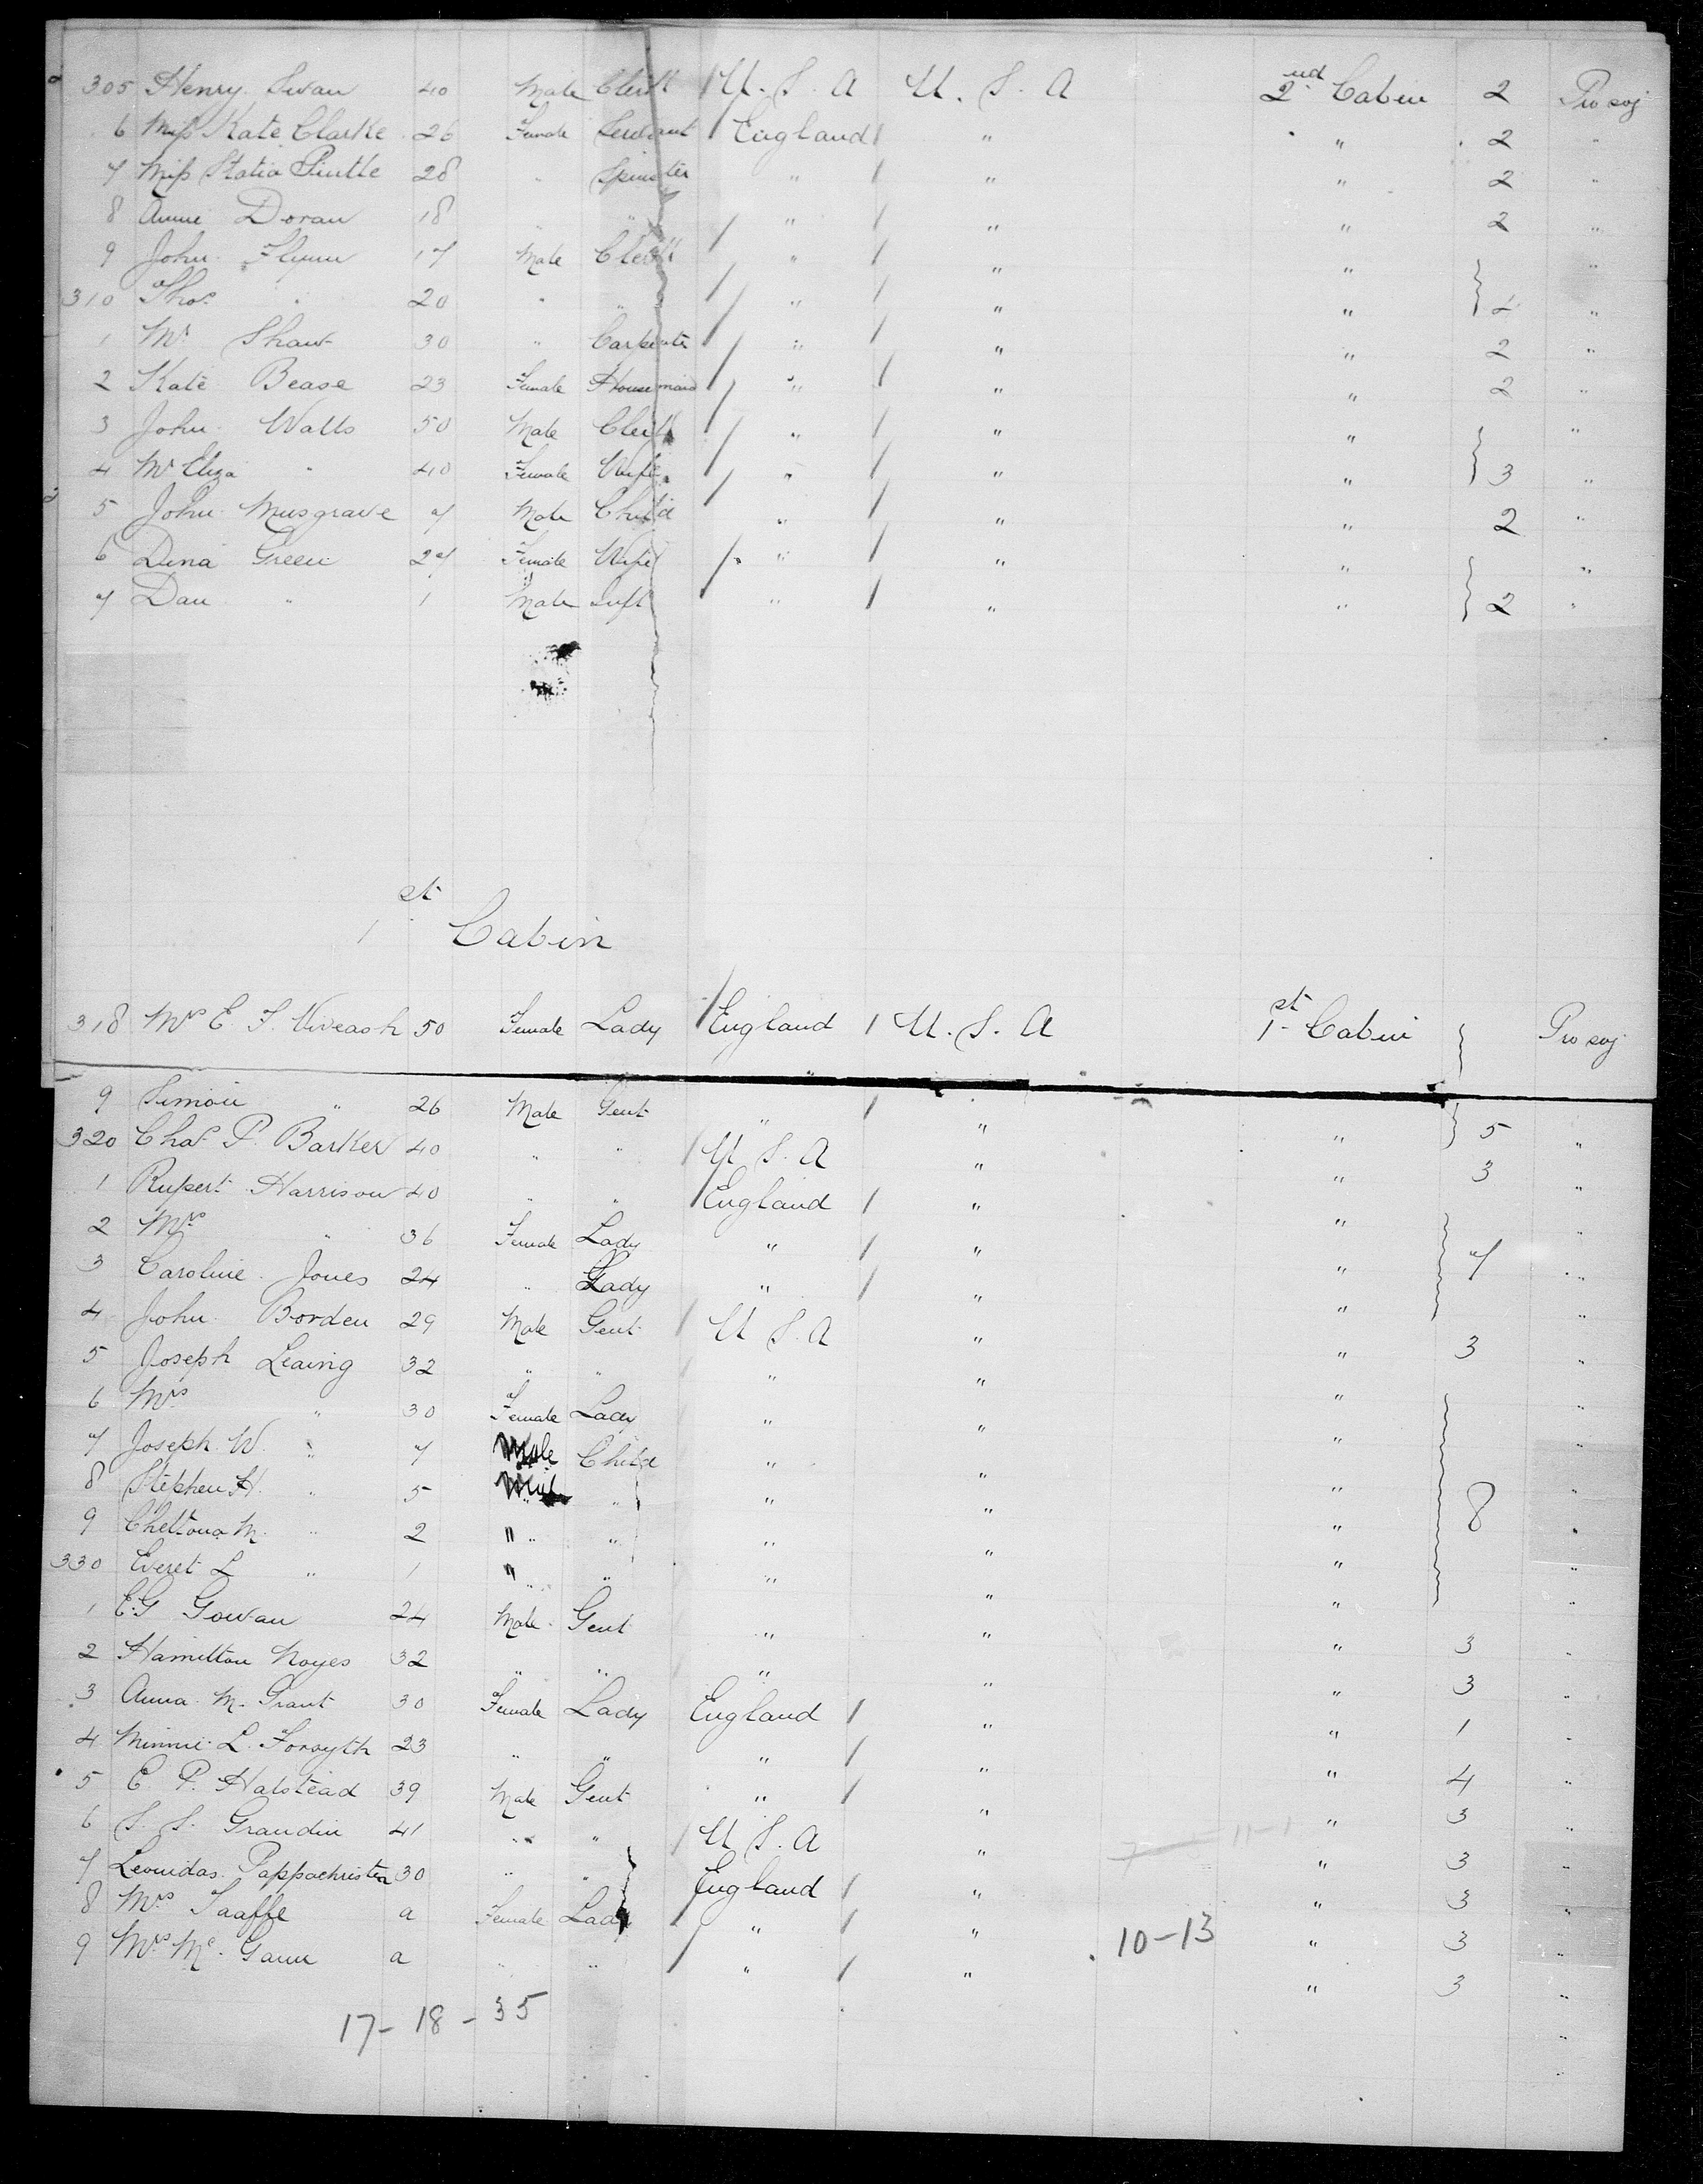 305 Henry Swan 40 Male Clerk U. S. A U. S. A 2nd Cabin 2 Pro soj
6 Miss Kate Clarke 26 Female Servant England " " 2 "
7 Miss Statia 28 " Spinster " " " 2 "
8 Annie Doran 18 " " " " " 2 "
9 John Flynn 17 Male Clerk " " " "
310 Thos " 20 " " " " " 2 "
1 Mr Shaw 30 " Carpenter " " " 2 "
2 Kate Bease 23 Female Housemaid " " " 2 "
3 John Watts 50 Male Clerk " " " "
4 Mrs Eliza " 40 Female Wife " " " 3 "
5 John Musgrave 7 Male Child " " " 2 "
6 Dina Green 27 Female Wife " " " "
7 Dan " 1 Male Inft " " " 2 "
1st Cabin
318 Mrs E. F. Viveash 50 Female Lady England U. S. A 1st Cabin Pro soj
9 Simon " 26 Male Gent " " " 5 "
320 Chas P. Barker 40 " " U S. A " " 3 "
1 Rupert Harrison 40 " " England " " "
2 Mrs " 36 Female Lady " " " 7 "
3 Caroline Jones 24 " Lady " " " "
4 John Borden 29 Male Gent U S. A " " 3 "
5 Joseph Leaing 32 " " " " " "
6 Mrs " 30 Female Lady " " " "
7 Joseph W. " 7 Male Child " " " "
8 Stephen H. " 5 " " " " 8 "
9 M. " 2 " " " " " "
330 Everet L " 1 " " " " " "
1 E. G Gowan 24 Male Gent " " " 3 "
2 Hamilton Noyes 32 " " " " " 3 "
3 Anna M. Grant 30 Female Lady England " " 1 "
4 Minnie L. Forsyth 23 " " " " " 4 "
5 E. P. Halstead 39 Male Gent " " " 3 "
6 S. S. Grandin 41 " " U S. A " 11-1 " 3 "
7 Leonidas Pappachristen 30 " " England " " 3 "
8 Mrs Taaffe a Female Lady " " 10-13 " 3 "
9 Mrs Mc. Gann a " " " " " 3 "
17-18-35